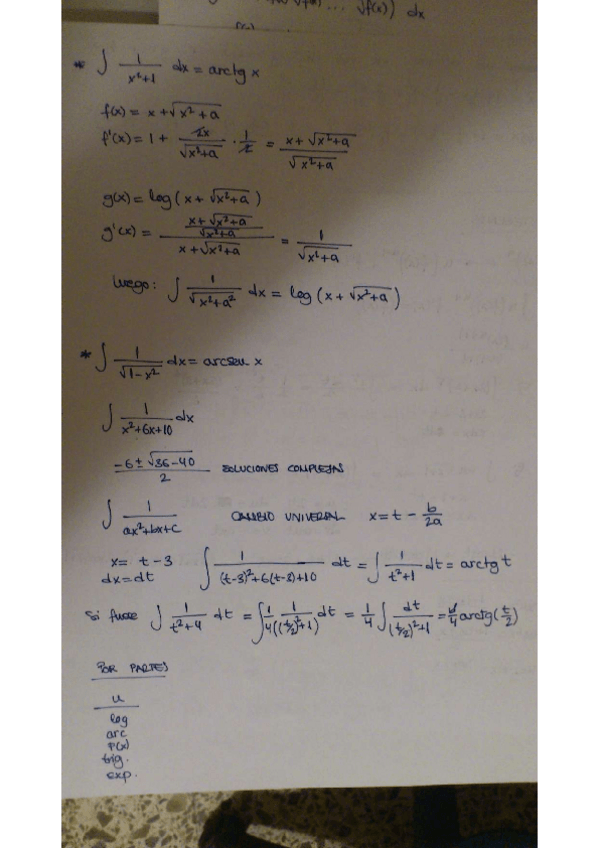 √f(x)) dx
* ∫ 1/(x²+1) dx = arctg x
f(x) = x + √(x²+a)
f'(x) = 1 + 2x/√(x²+a) · 1/2 = (x + √(x²+a))/√(x²+a)
g(x) = log(x + √(x²+a))
g'(x) = ((x + √(x²+a))/√(x²+a))/(x + √(x²+a)) = 1/√(x²+a)
luego: ∫ 1/√(x²+a²) dx = log(x + √(x²+a))
* ∫ 1/√(1-x²) dx = arcsen x
∫ 1/(x²+6x+10) dx
(-6 ± √(36-40))/2 SOLUCIONES COMPLEJAS
∫ 1/(ax²+bx+c) CAMBIO UNIVERSAL x = t - b/2a
x = t-3 ∫ 1/((t-3)²+6(t-3)+10) dt = ∫ 1/(t²+1) dt = arctg t
dx = dt
Si fuese ∫ 1/(t²+4) dt = ∫ 1/4 1/((t/2)²+1) dt = 1/4 ∫ dt/((t/2)²+1) = 1/4 arctg(t/2)
POR PARTES
u
log
arc
P(x)
trig.
exp.